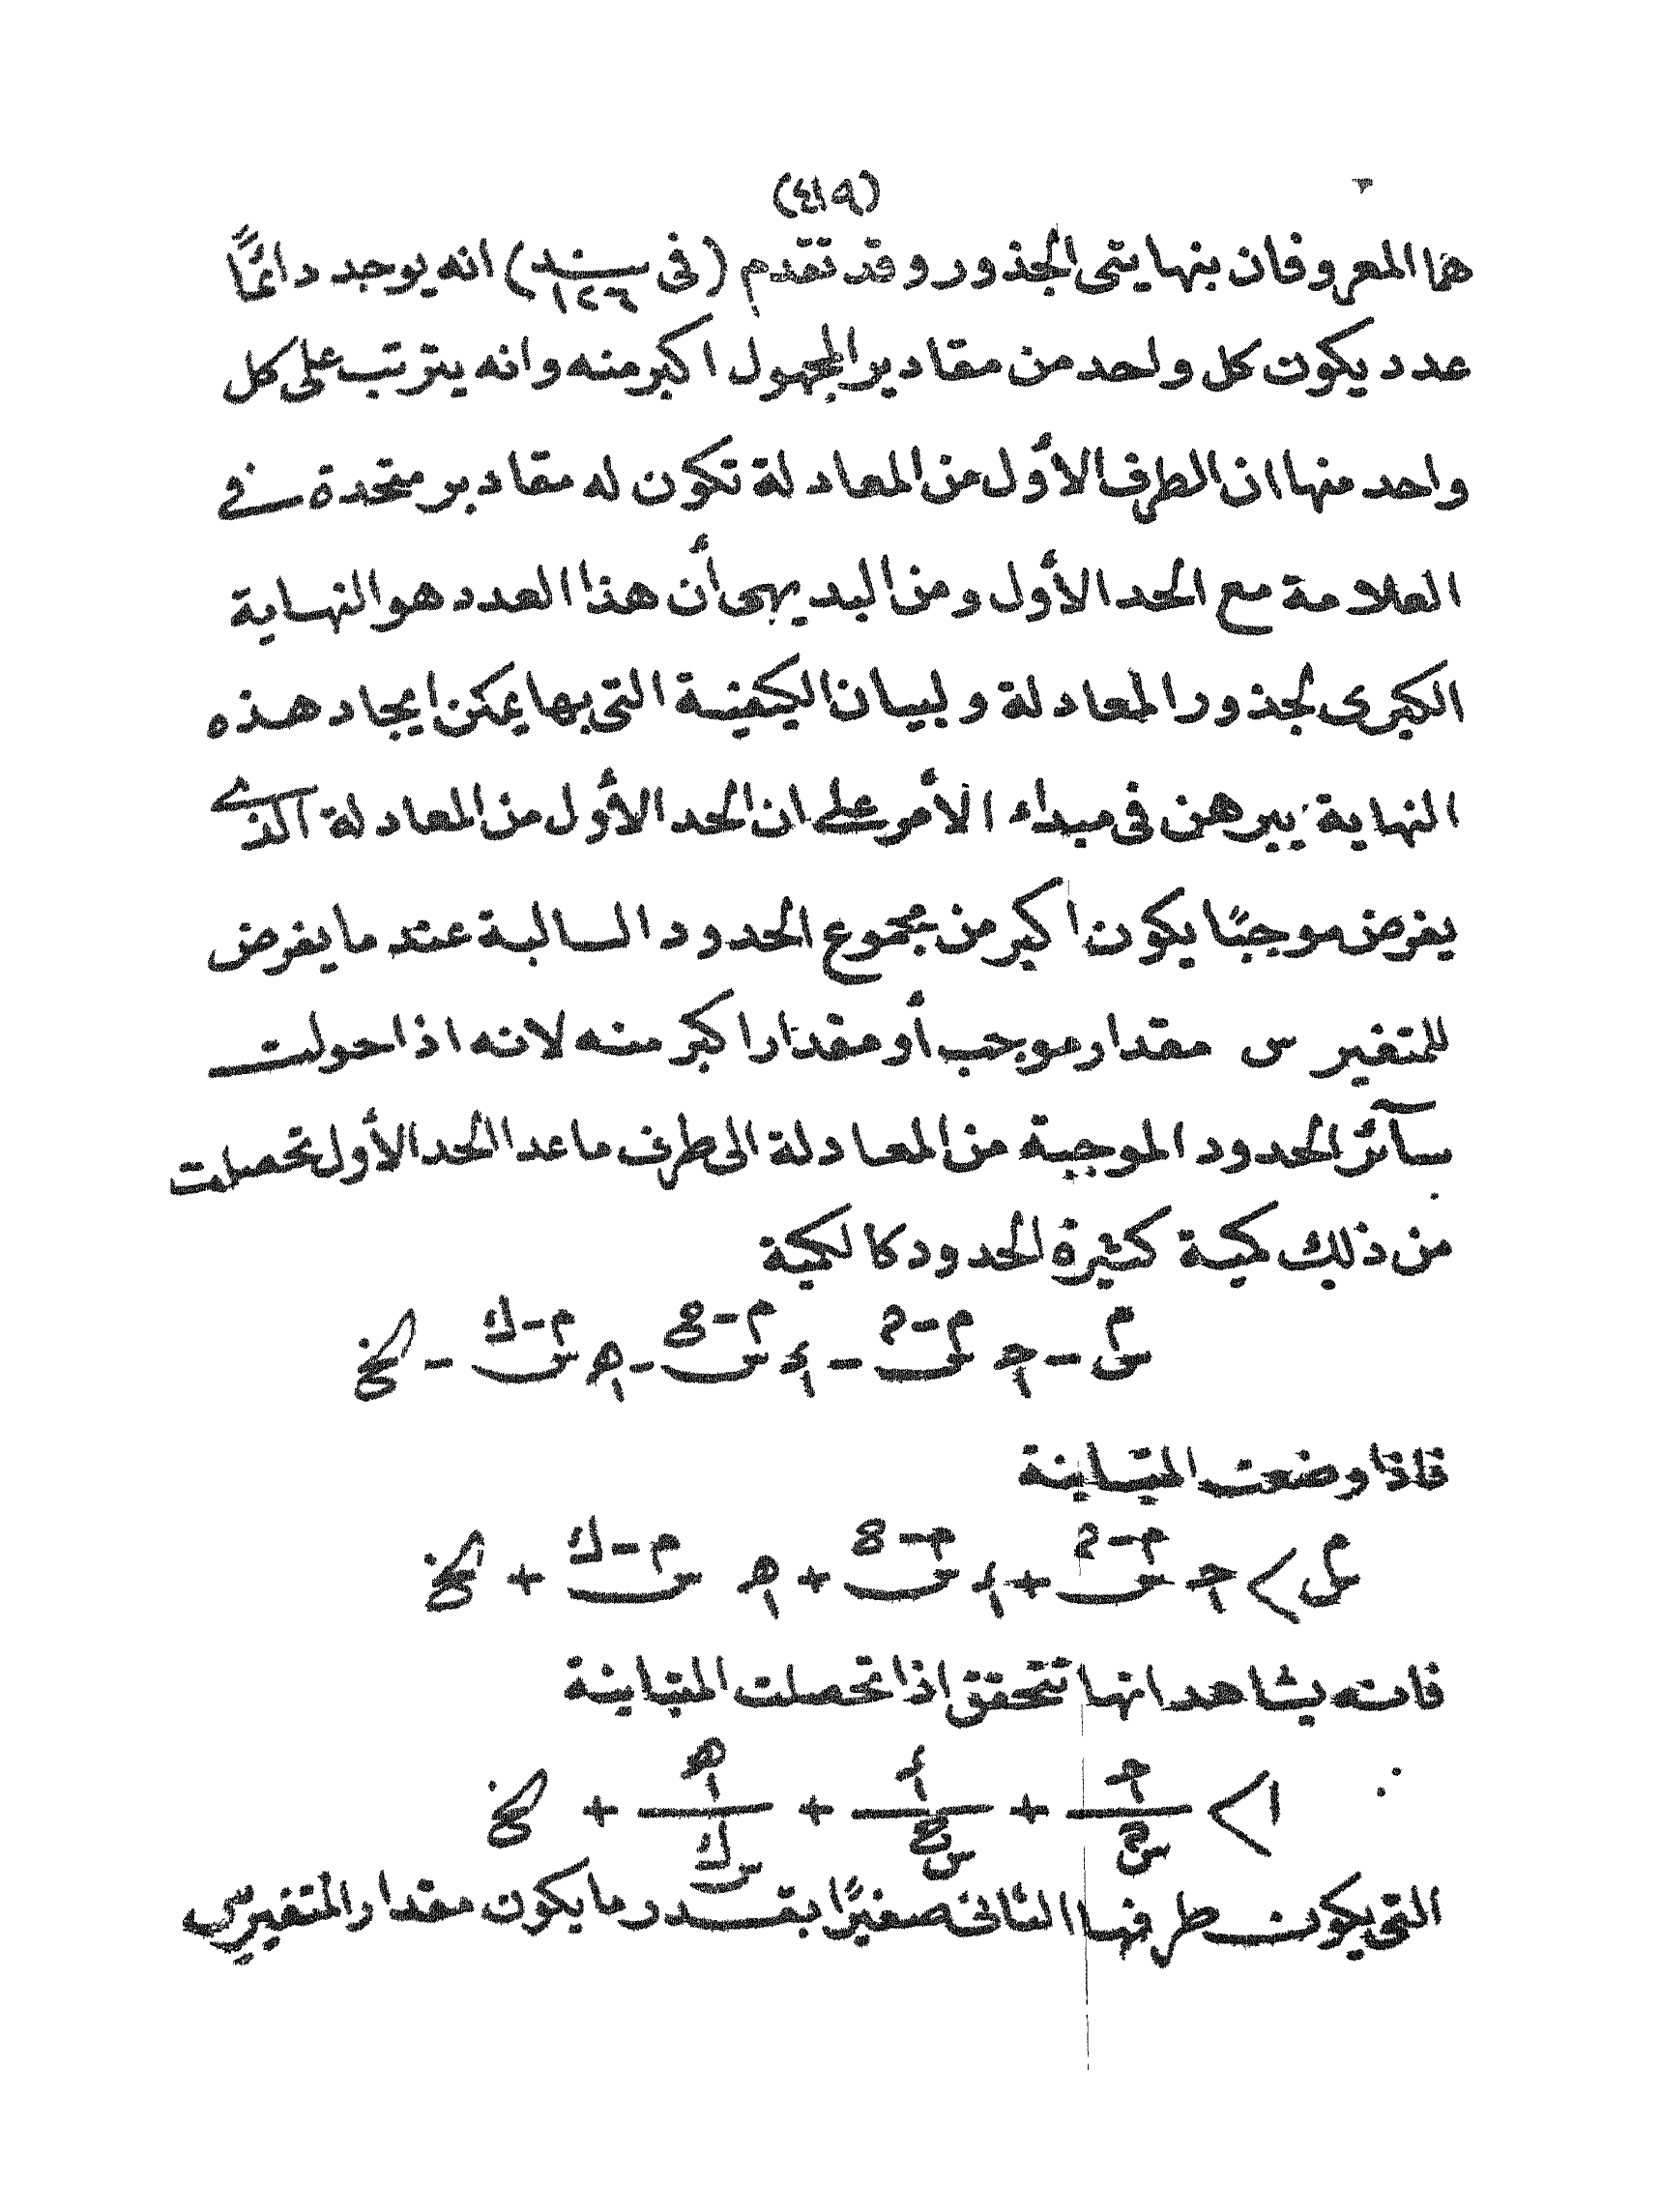 (٤١٩)
هما المعروفان بنهايتى الجذور وقد تقدم (فى بند ١٢٦) انه يوجد دائمًا
عدد يكون كل واحد من مقادير المجهول اكبر منه وانه يترتب على كل
واحد منها ان الطرف الأول من المعادلة تكون له مقادير متحدة فى
العلامة مع الحد الأول ومن البديهى أن هذا العدد هو النهاية
الكبرى لجذور المعادلة ولبيان الكيفية التى بها يمكن ايجاد هذه
النهاية يبرهن فى مبداء الأمر على ان الحد الأول من المعادلة الذى
يفرض موجبًا يكون اكبر من مجموع الحدود السالبة عند ما يفرض
للمتغير س مقدار موجب أو مقدار اكبر منه لانه اذا حولت
سآئر الحدود الموجبة من المعادلة الى طرف ماعدا الحد الأول تحصلت
من ذلك كمية كثيرة الحدود كالكمية
فاذا وضعت المتباينة
فانه يشاهد انها تتحقق اذا تحصلت المتباينة
التى يكون طرفها الثانى صغيرًا بقدر ما يكون مقدار المتغير س